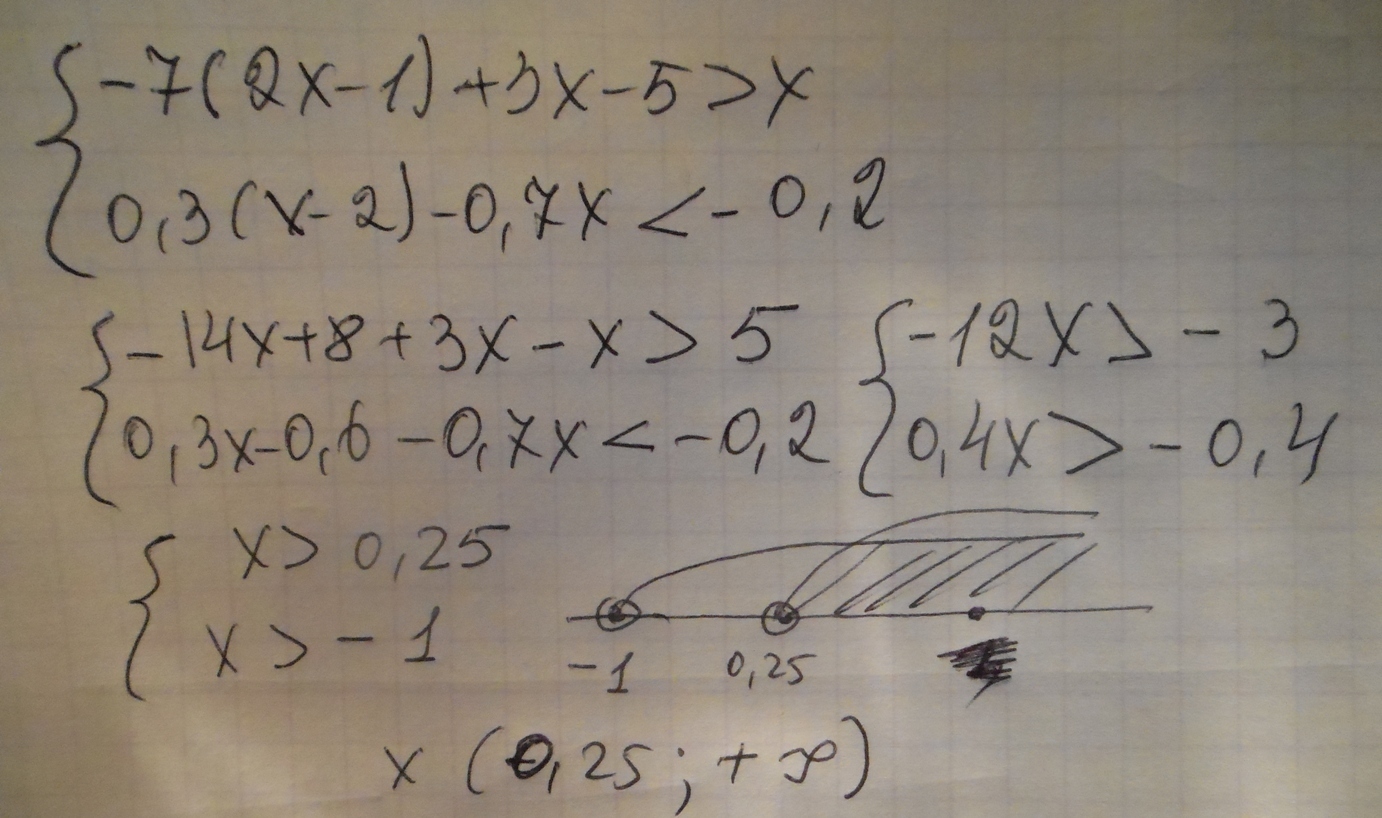 { -7(2x-1)+3x-5>x
0,3(x-2)-0,7x<-0,2
{ -14x+8+3x-x>5 { -12x>-3
0,3x-0,6-0,7x<-0,2 0,4x>-0,4
{ x>0,25
x>-1
-1 0,25
x (0,25; +∞)